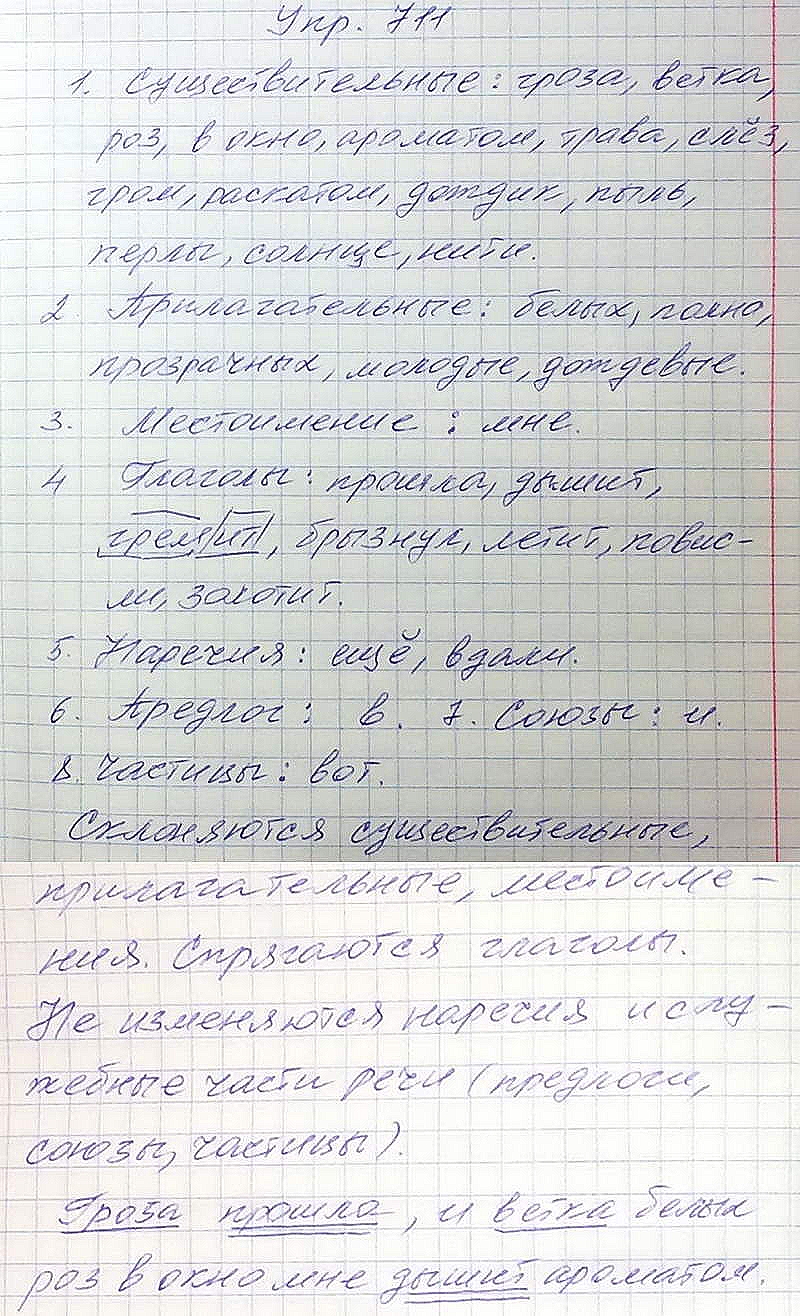 Упр. 711
1. Существительные: гроза, ветка,
роз, в окно, ароматом, трава, слёз,
гром, раскатом, дождик, пыль,
перлы, солнце, нити.
2. Прилагательные: белых, полно,
прозрачных, молодые, дождевые.
3. Местоимение: мне.
4 Глаголы: прошла, дышит,
гремит, брызнул, летит, повис-
ли, золотит.
5. Наречия: ещё, вдали.
6. Предлог: в. 7. Союзы: и.
8. Частицы: вот.
Склоняются существительные,
прилагательные, местоиме-
ния. Спрягаются глаголы.
Не изменяются наречия и слу-
жебные части речи (предлоги,
союзы, частицы).
Гроза прошла, и ветка белых
роз в окно мне дышит ароматом.